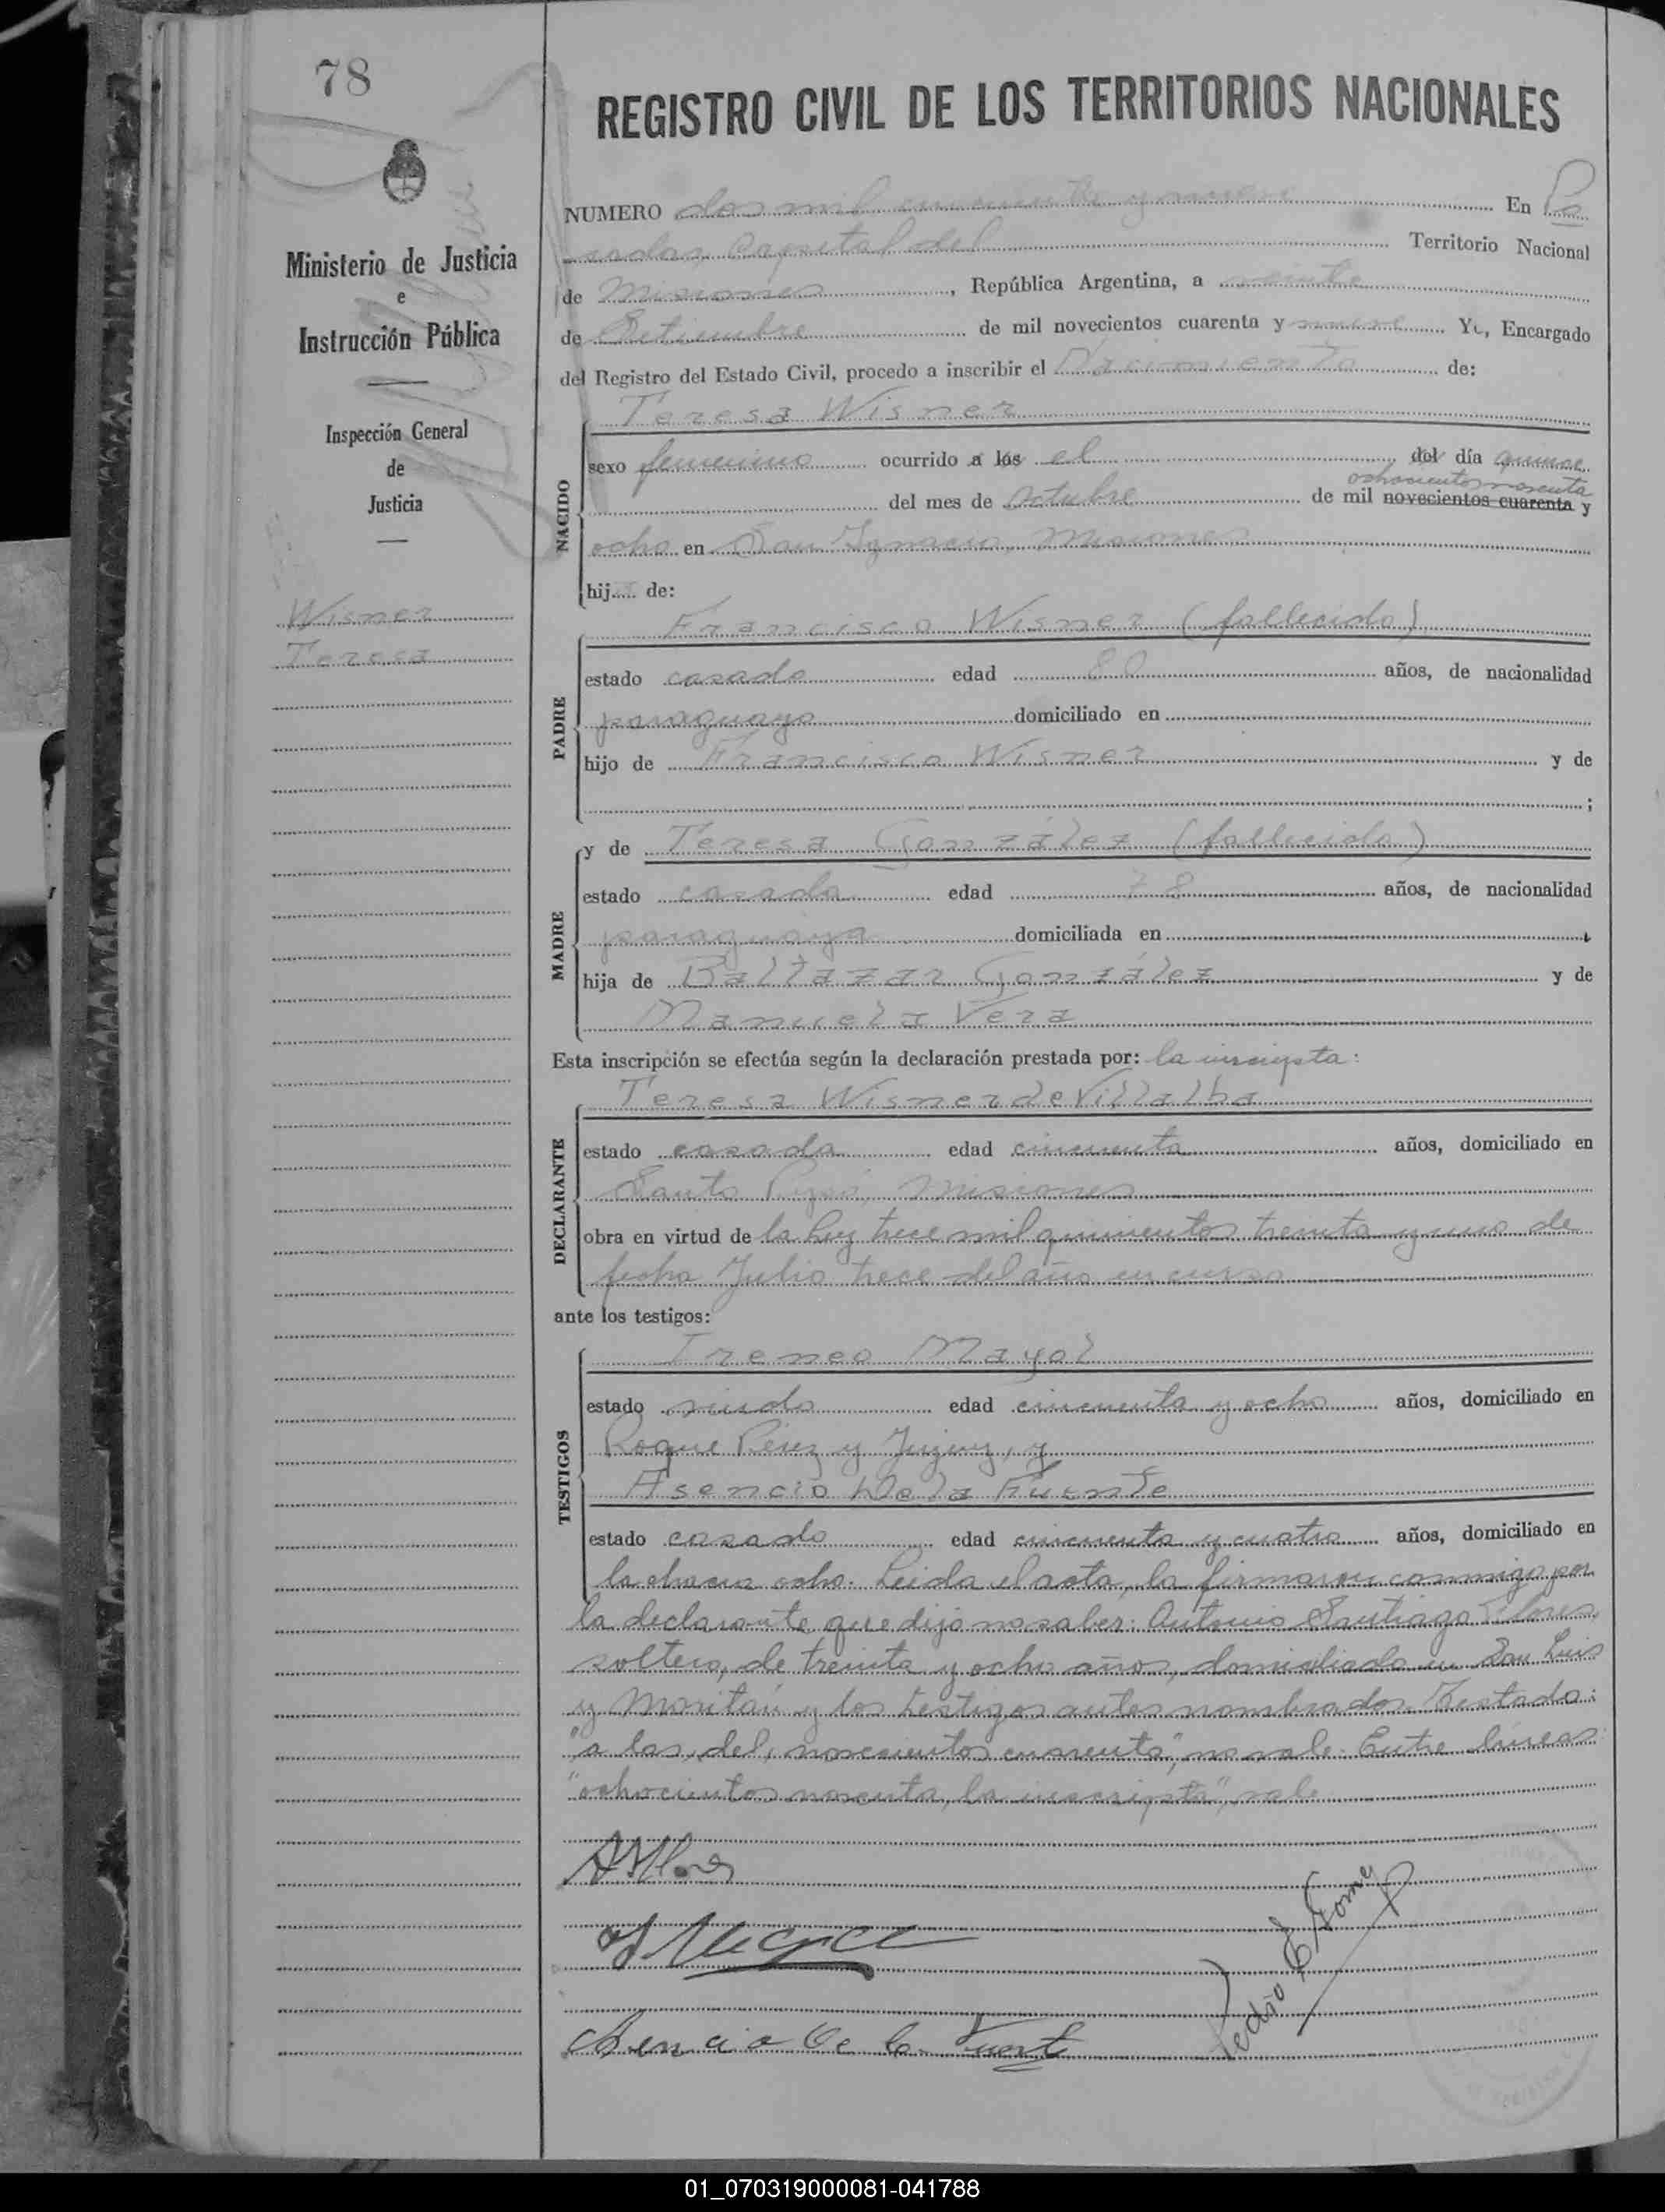 78
REGISTRO CIVIL DE LOS TERRITORIOS NACIONALES
Ministerio de Justicia
e
Instrucción Pública
Inspección General
de
Justicia
Wisner
Teresa
NUMERO dos mil cincuenta y nueve En Po
sadas, Capital del Territorio Nacional
de Misiones, República Argentina, a veinte
de Setiembre de mil novecientos cuarenta y nueve Yo, Encargado
del Registro del Estado Civil, procedo a inscribir el Nacimiento de:
NACIDO
Teresa Wisner
sexo femenino ocurrido a las el del día quince
ochocientos noventa
del mes de Octubre de mil novecientos cuarenta y
ocho en San Ignacio, Misiones
hij de:
PADRE
Francisco Wisner (fallecido)
estado casado edad 80 años, de nacionalidad
paraguayo domiciliado en
hijo de Francisco Wisner y de
;
MADRE
y de Teresa González (fallecida)
estado casada edad 78 años, de nacionalidad
paraguaya domiciliada en
hija de Baltazar González y de
Manuela Vera
Esta inscripción se efectúa según la declaración prestada por: la inscripta:
DECLARANTE
Teresa Wisner de Villalba
estado casada edad cincuenta años, domiciliado en
Santo Pipó, Misiones
obra en virtud de la Ley trece mil quinientos treinta y uno de
fecha Julio trece del año en curso
ante los testigos:
TESTIGOS
Ireneo Mayol
estado viudo edad cincuenta y ocho años, domiciliado en
Roque Pérez y Jujuy, y
Asencio De la Fuente
estado casado edad cincuenta y cuatro años, domiciliado en
la chacra ocho. Leída el acta, la firmaron conmigo por
la declarante que dijo no saber: Antonio Santiago Flores,
soltero, de treinta y ocho años, domiciliado en San Luis
y Moritán y los testigos antes nombrados. Testado:
"a las, del, novecientos cuarenta", no vale. Entre líneas:
"ochocientos noventa, la inscripta", vale
ASFlores
Asencio De la Fuente
Pedro E Gomez
01_070319000081-041788